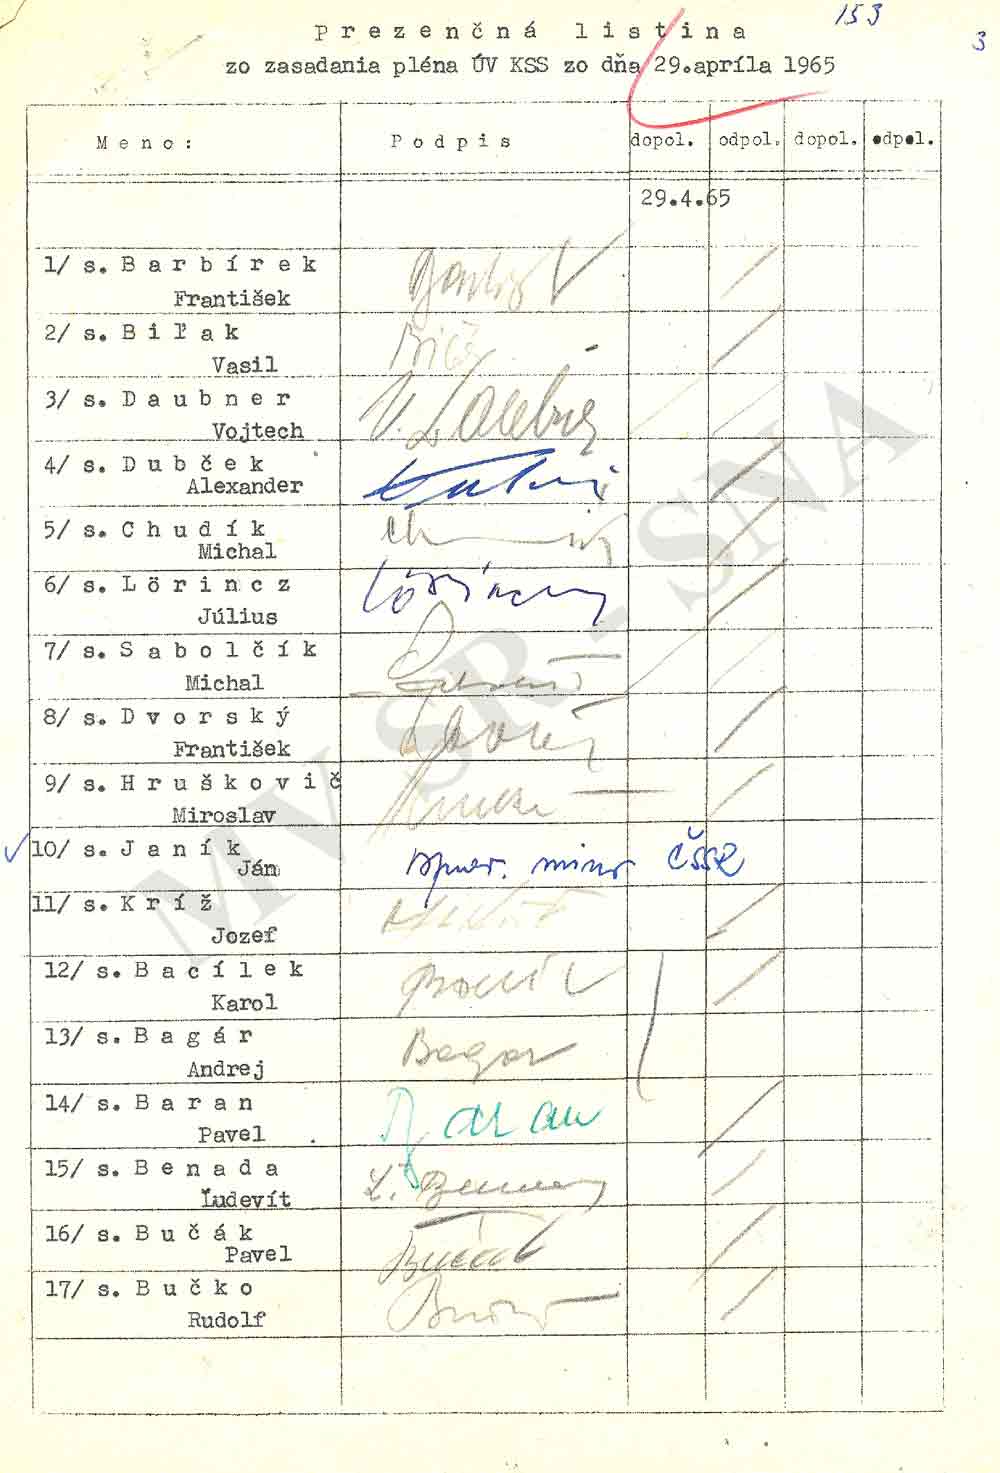 153
3
Prezenčná listina
zo zasadania pléna ÚV KSS zo dňa 29.apríla 1965
Meno: Podpis dopol. odpol. dopol. odpol.
29.4.65
1/ s. Barbírek
František
2/ s. Biľak
Vasil
3/ s. Daubner
Vojtech
V. Daubner
4/ s. Dubček
Alexander
5/ s. Chudík
Michal
6/ s. Lörincz
Július
Lörincz
7/ s. Sabolčík
Michal
8/ s. Dvorský
František
9/ s. Hruškovič
Miroslav
10/ s. Janík
Ján
ČSSR
11/ s. Kríž
Jozef
12/ s. Bacílek
Karol
13/ s. Bagár
Andrej
Bagar
14/ s. Baran
Pavel
Baran
15/ s. Benada
Ľudevít
16/ s. Bučák
Pavel
Bučák
17/ s. Bučko
Rudolf
MV SR - SNA